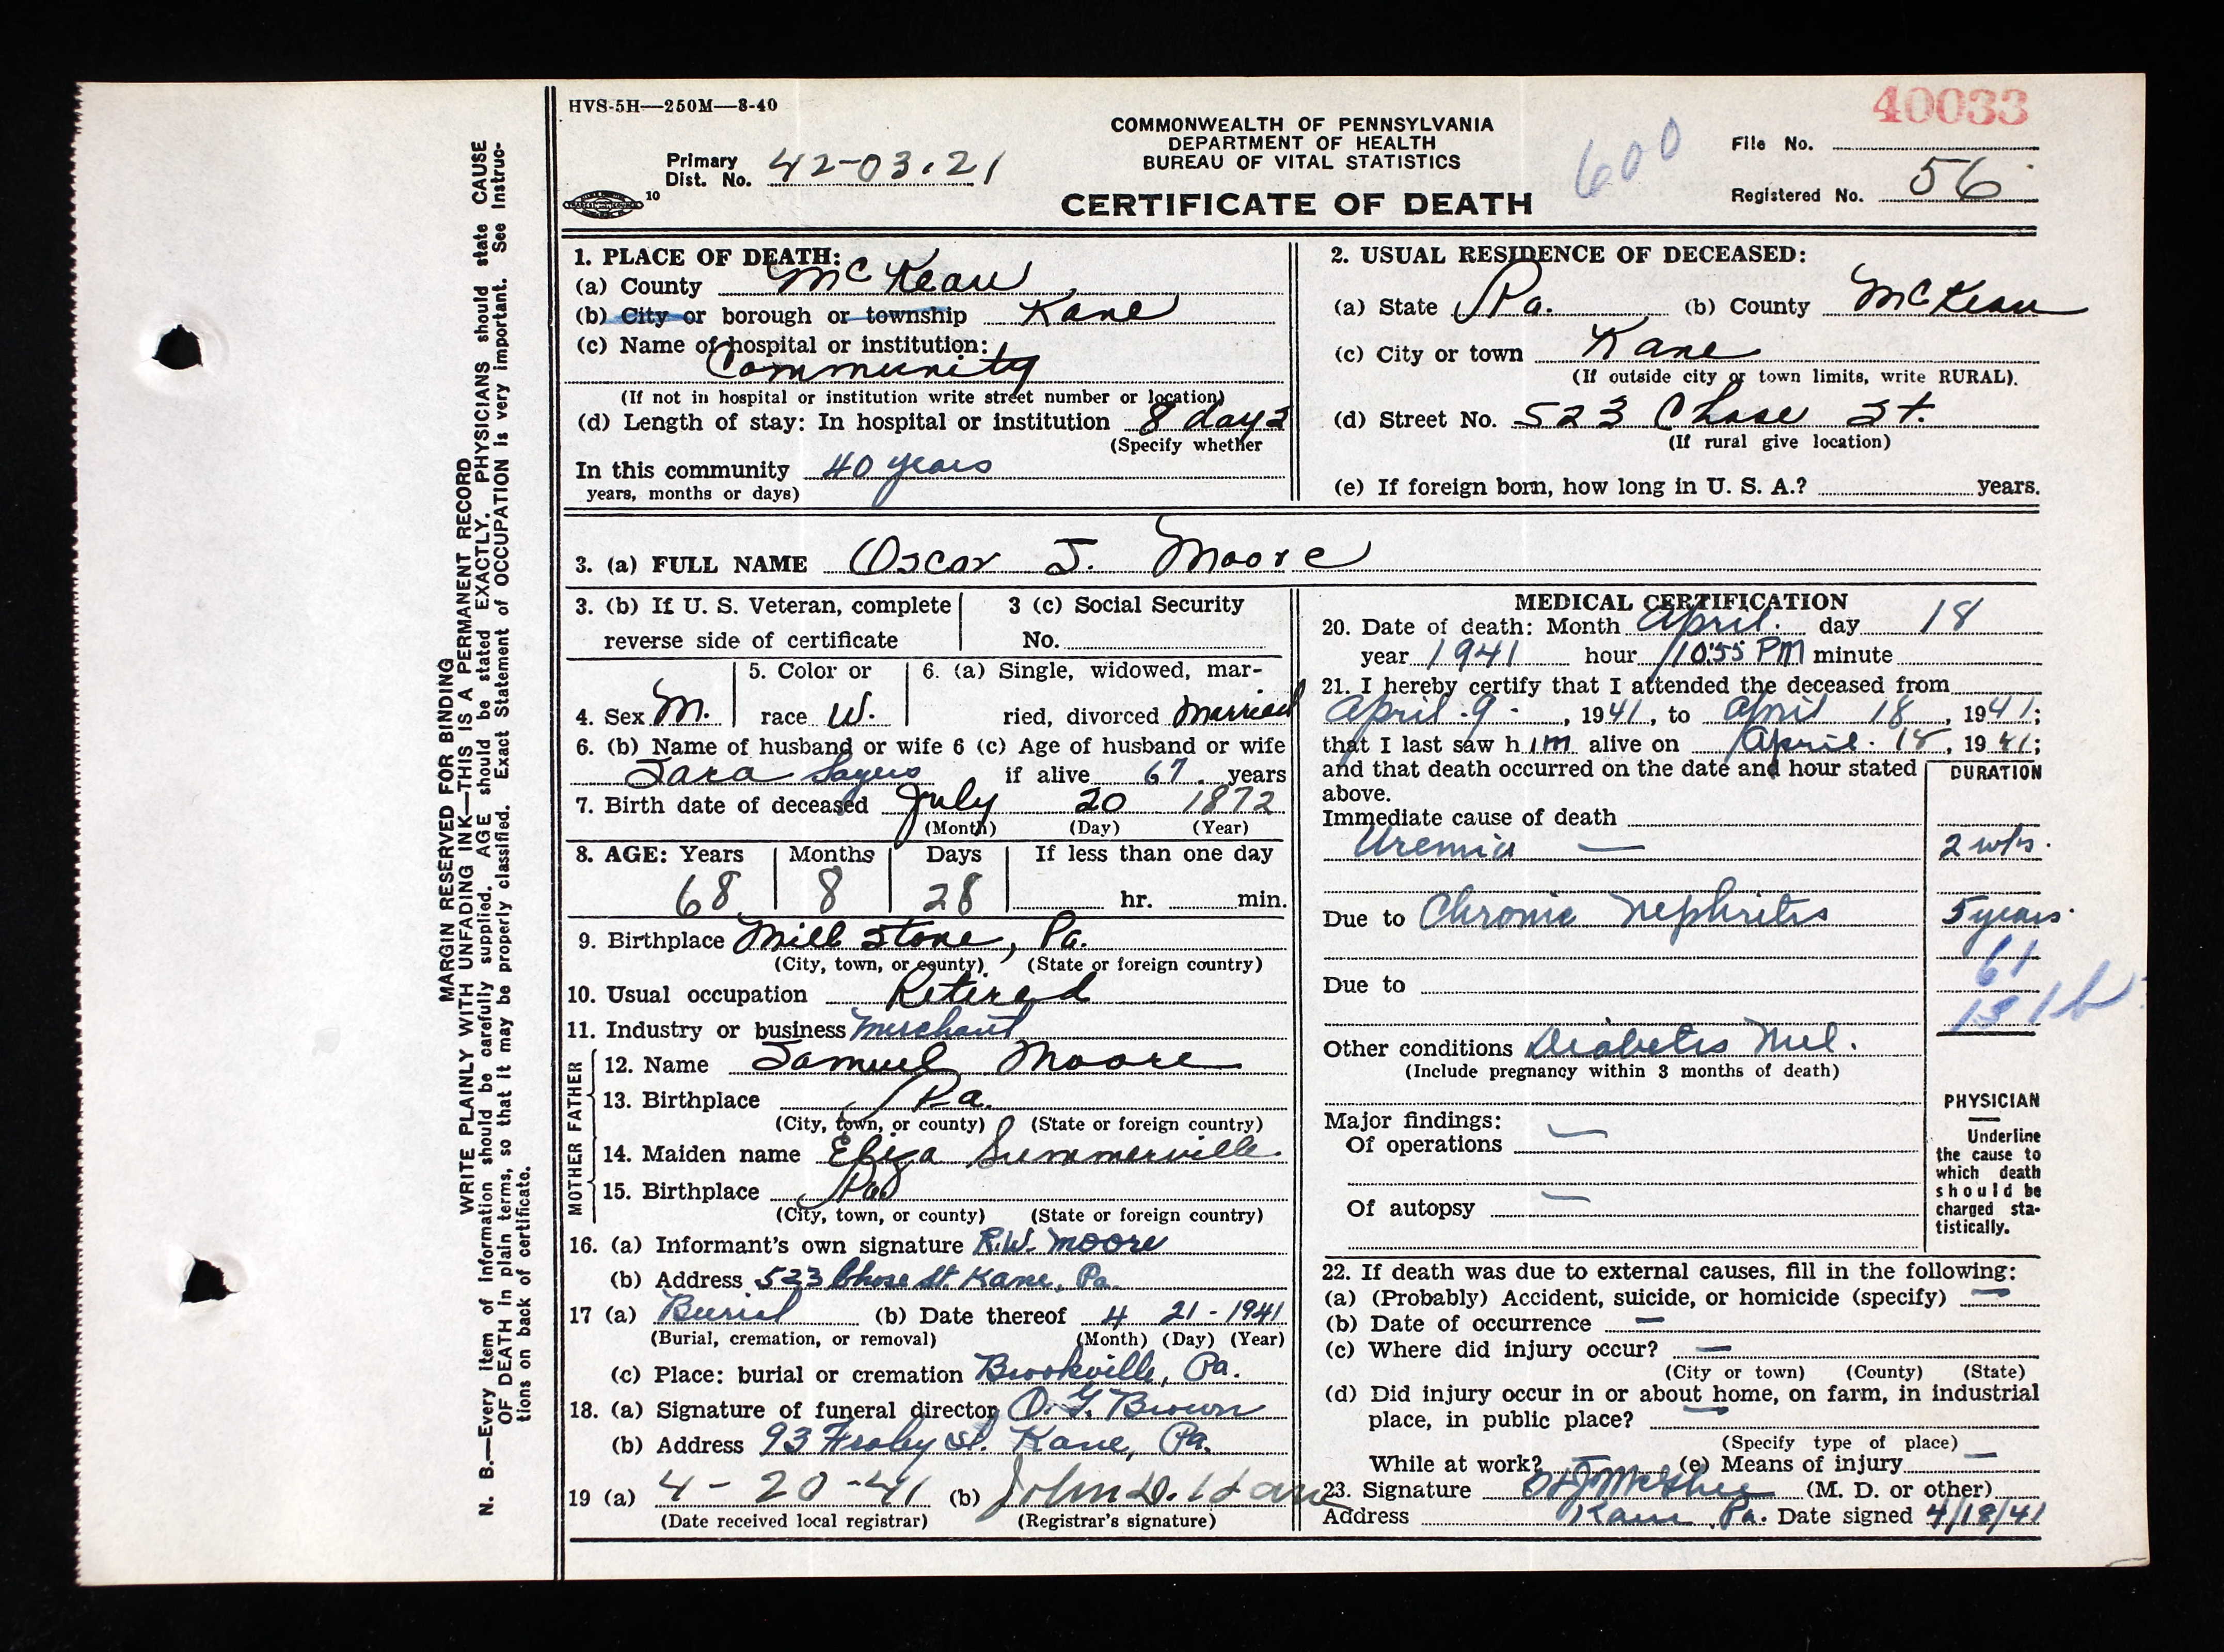 HVS-5H—250M—8-40
40033
COMMONWEALTH OF PENNSYLVANIA
DEPARTMENT OF HEALTH
BUREAU OF VITAL STATISTICS
CERTIFICATE OF DEATH
600
Primary Dist. No. 42-03.21
10
File No.
Registered No. 56
MARGIN RESERVED FOR BINDING
WRITE PLAINLY WITH UNFADING INK—THIS IS A PERMANENT RECORD
N. B.—Every item of information should be carefully supplied. AGE should be stated EXACTLY. PHYSICIANS should state CAUSE
OF DEATH in plain terms, so that it may be properly classified. Exact Statement of OCCUPATION is very important. See Instruc-
tions on back of certificate.
1. PLACE OF DEATH:
(a) County McKean
(b) City or borough or township Kane
(c) Name of hospital or institution:
Community
(If not in hospital or institution write street number or location)
(d) Length of stay: In hospital or institution 8 days
(Specify whether
In this community 40 years
years, months or days)
2. USUAL RESIDENCE OF DECEASED:
(a) State Pa. (b) County McKean
(c) City or town Kane
(If outside city or town limits, write RURAL).
(d) Street No. 523 Chase St.
(If rural give location)
(e) If foreign born, how long in U. S. A.? years.
3. (a) FULL NAME Oscar S. Moore
3. (b) If U. S. Veteran, complete
reverse side of certificate
3 (c) Social Security
No.
4. Sex M.
5. Color or
race W.
6. (a) Single, widowed, mar-
ried, divorced Married
6. (b) Name of husband or wife 6 (c) Age of husband or wife
Sara Sayers if alive 67 years
7. Birth date of deceased July 20 1872
(Month) (Day) (Year)
8. AGE: Years Months Days If less than one day
68 8 28 hr. min.
9. Birthplace Mill Stone, Pa.
(City, town, or county) (State or foreign country)
10. Usual occupation Retired
11. Industry or business Merchant
FATHER
12. Name Samuel Moore
13. Birthplace Pa.
(City, town, or county) (State or foreign country)
MOTHER
14. Maiden name Eliza Summerville
15. Birthplace Pa.
(City, town, or county) (State or foreign country)
16. (a) Informant's own signature R.W. Moore
(b) Address 523 Chase St. Kane, Pa.
17 (a) Burial (b) Date thereof 4 21-1941
(Burial, cremation, or removal) (Month) (Day) (Year)
(c) Place: burial or cremation Brookville, Pa.
18. (a) Signature of funeral director O. G. Brown
(b) Address 93 Fraley St. Kane, Pa.
19 (a) 4-20-41 (b) John D.
(Date received local registrar) (Registrar's signature)
MEDICAL CERTIFICATION
20. Date of death: Month April. day 18
year 1941 hour 10:55 PM minute
21. I hereby certify that I attended the deceased from
April 9, 1941, to April 18, 1941;
that I last saw him alive on April 18, 1941;
and that death occurred on the date and hour stated
above.
DURATION
Immediate cause of death
Uremia — 2 wks.
Due to Chronic Nephritis 5 years.
61
Due to
131b
Other conditions Diabetes Mel.
(Include pregnancy within 3 months of death)
Major findings:
Of operations —
Of autopsy —
PHYSICIAN
Underline
the cause to
which death
should be
charged sta-
tistically.
22. If death was due to external causes, fill in the following:
(a) (Probably) Accident, suicide, or homicide (specify) —
(b) Date of occurrence —
(c) Where did injury occur? —
(City or town) (County) (State)
(d) Did injury occur in or about home, on farm, in industrial
place, in public place? —
(Specify type of place)
While at work? — (e) Means of injury —
23. Signature (M. D. or other)
Address Kane Pa. Date signed 4/18/41